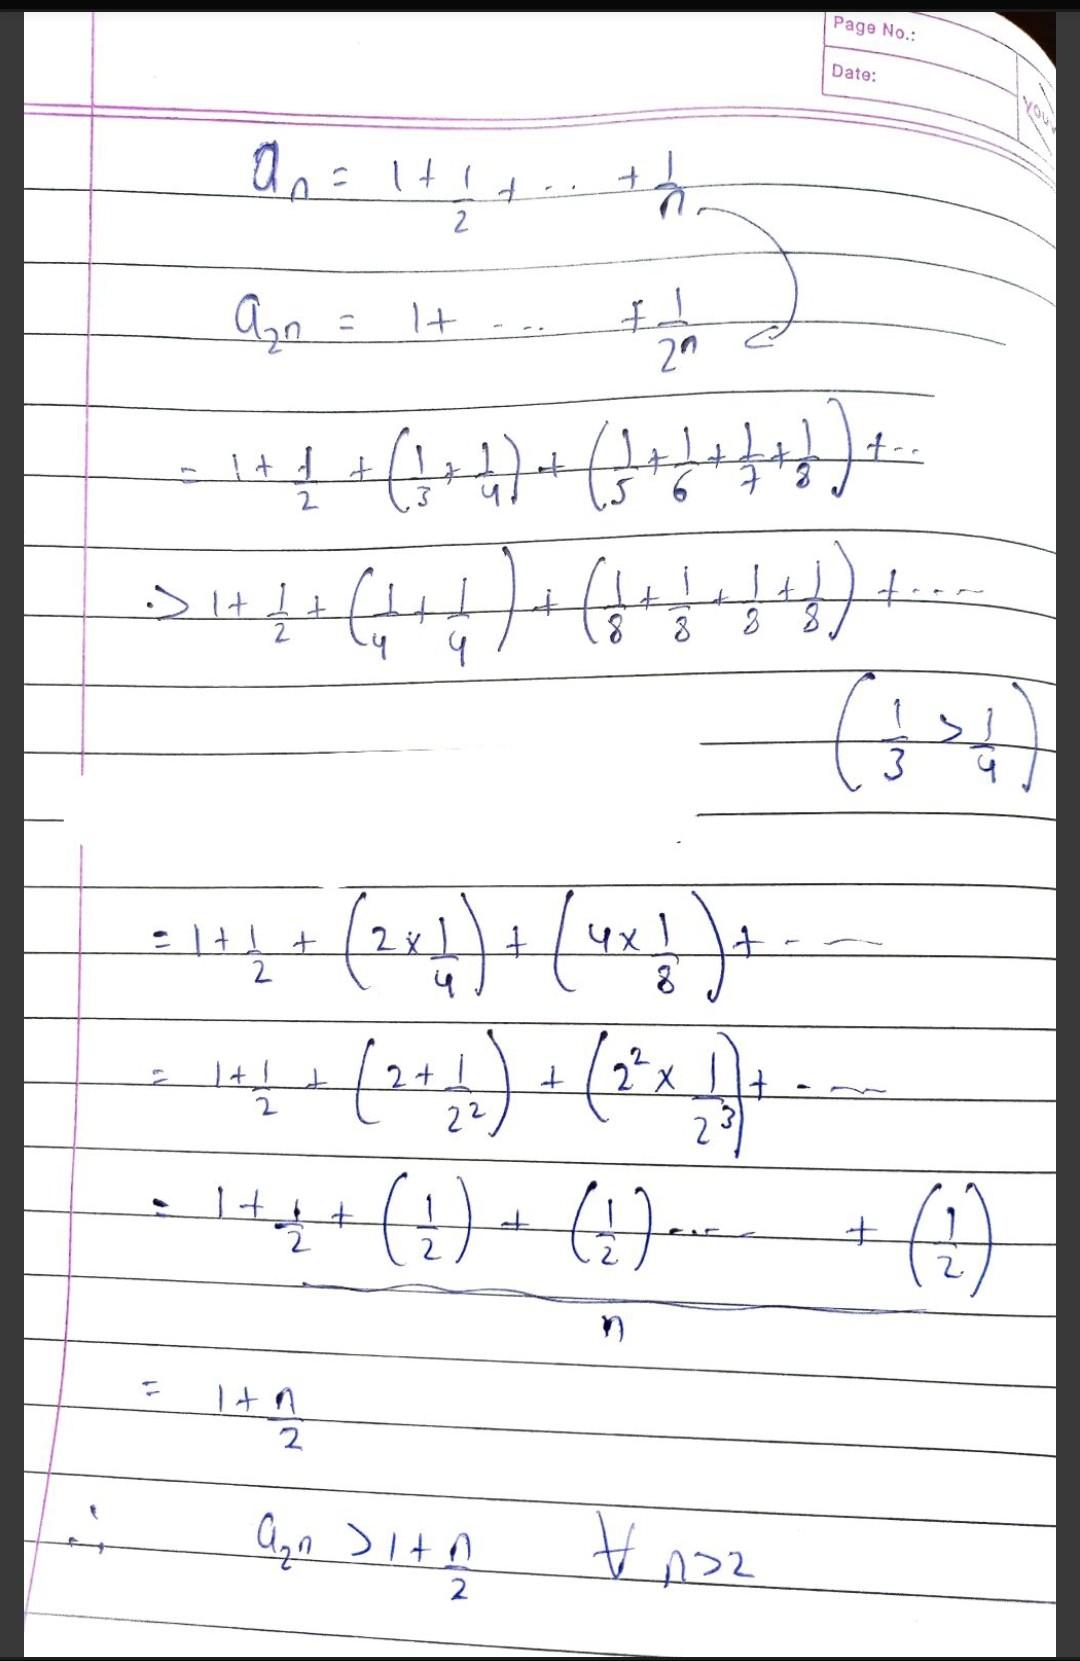 Page No.:
Date:
you
aₙ = 1 + 1/2 + ... + 1/n
a₂ₙ = 1 + .... + 1/2ⁿ
= 1 + 1/2 + (1/3 + 1/4) + (1/5 + 1/6 + 1/7 + 1/8) + ...
> 1 + 1/2 + (1/4 + 1/4) + (1/8 + 1/8 + 1/8 + 1/8) + ....
(1/3 > 1/4)
= 1 + 1/2 + (2 × 1/4) + (4 × 1/8) + ...
= 1 + 1/2 + (2 + 1/2²) + (2² × 1/2³) + ...
= 1 + 1/2 + (1/2) + (1/2) ..... + (1/2)
n
= 1 + n/2
∴ a₂ₙ > 1 + n/2 ∀ n > 2